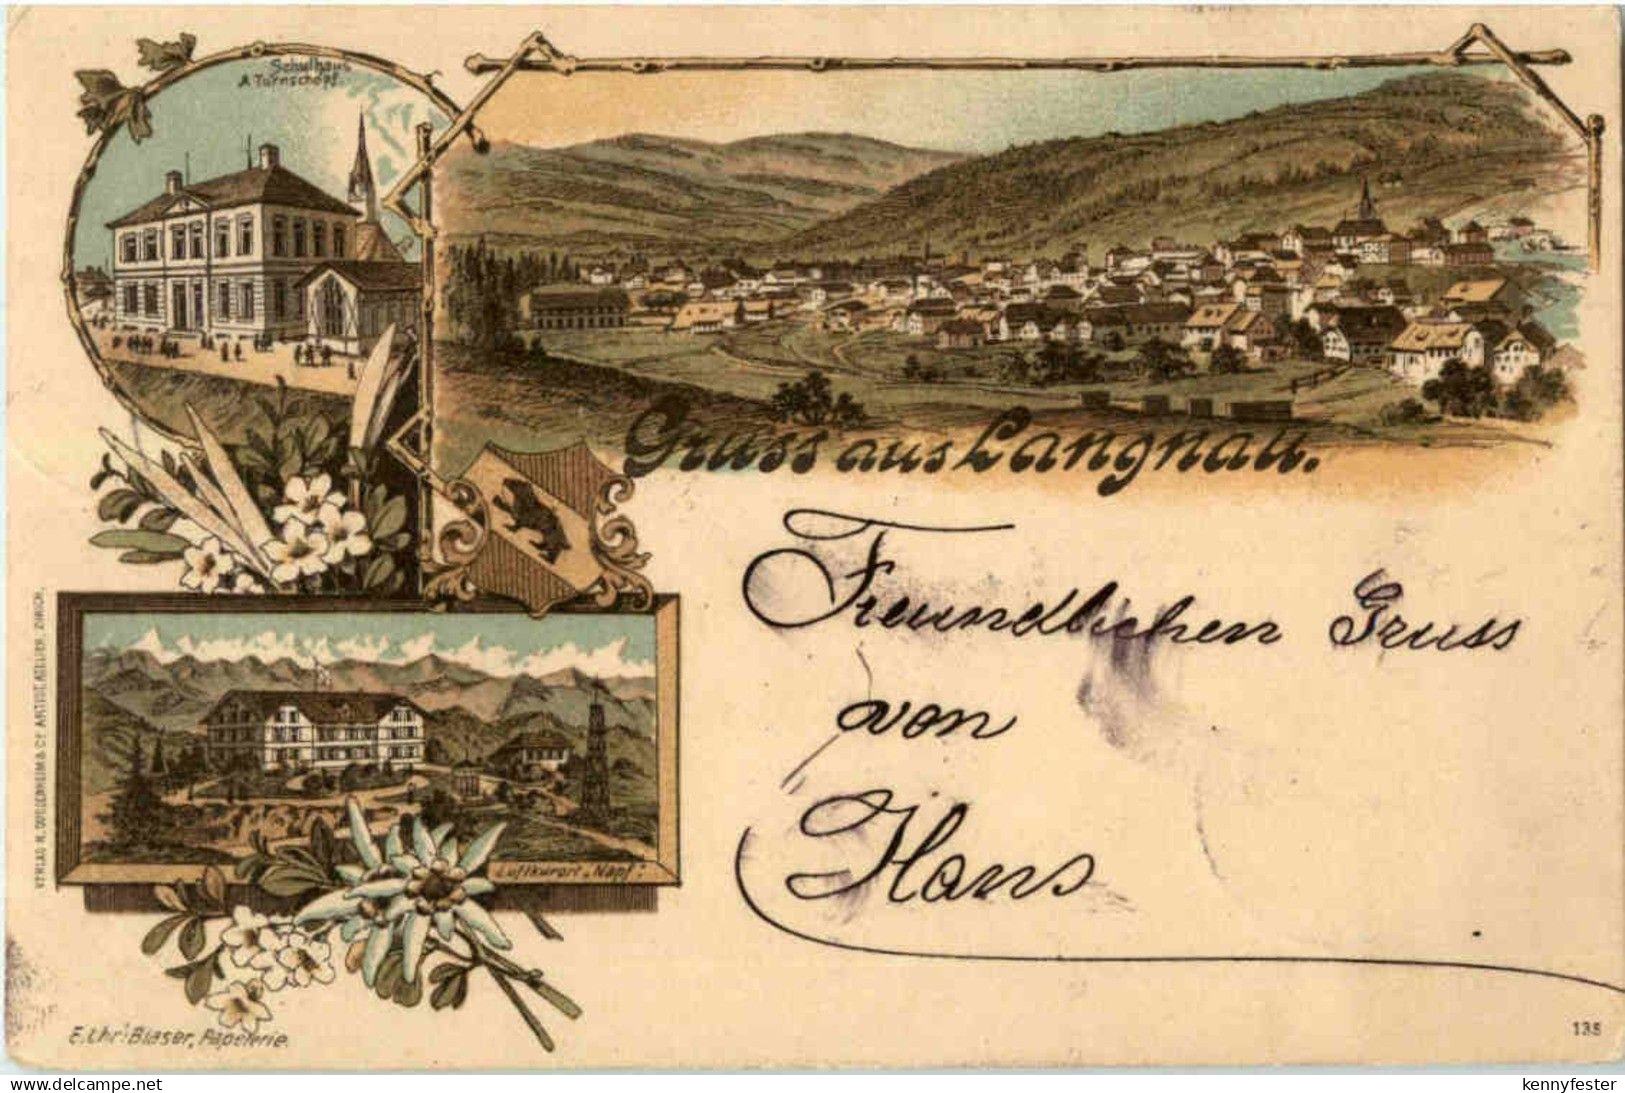 Schulhaus
A. Turnschopf.
Gruss aus Langnau.
Freundlichen Gruss
von
Hans
Luftkurort „Napf".
VERLAG H. GUGGENHEIM & Cº ARTIST. ATELIER, ZÜRICH.
E. Chr. Blaser, Papeterie.
135
www.delcampe.net
kennyfester